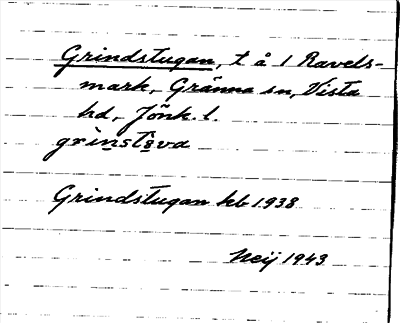 Grindstugan, t å 1 Ravels-
mark, Gränna sn, Vista
hd, Jönk. l.
grinstu̇va
Grindstugan kb 1938
Neij 1943